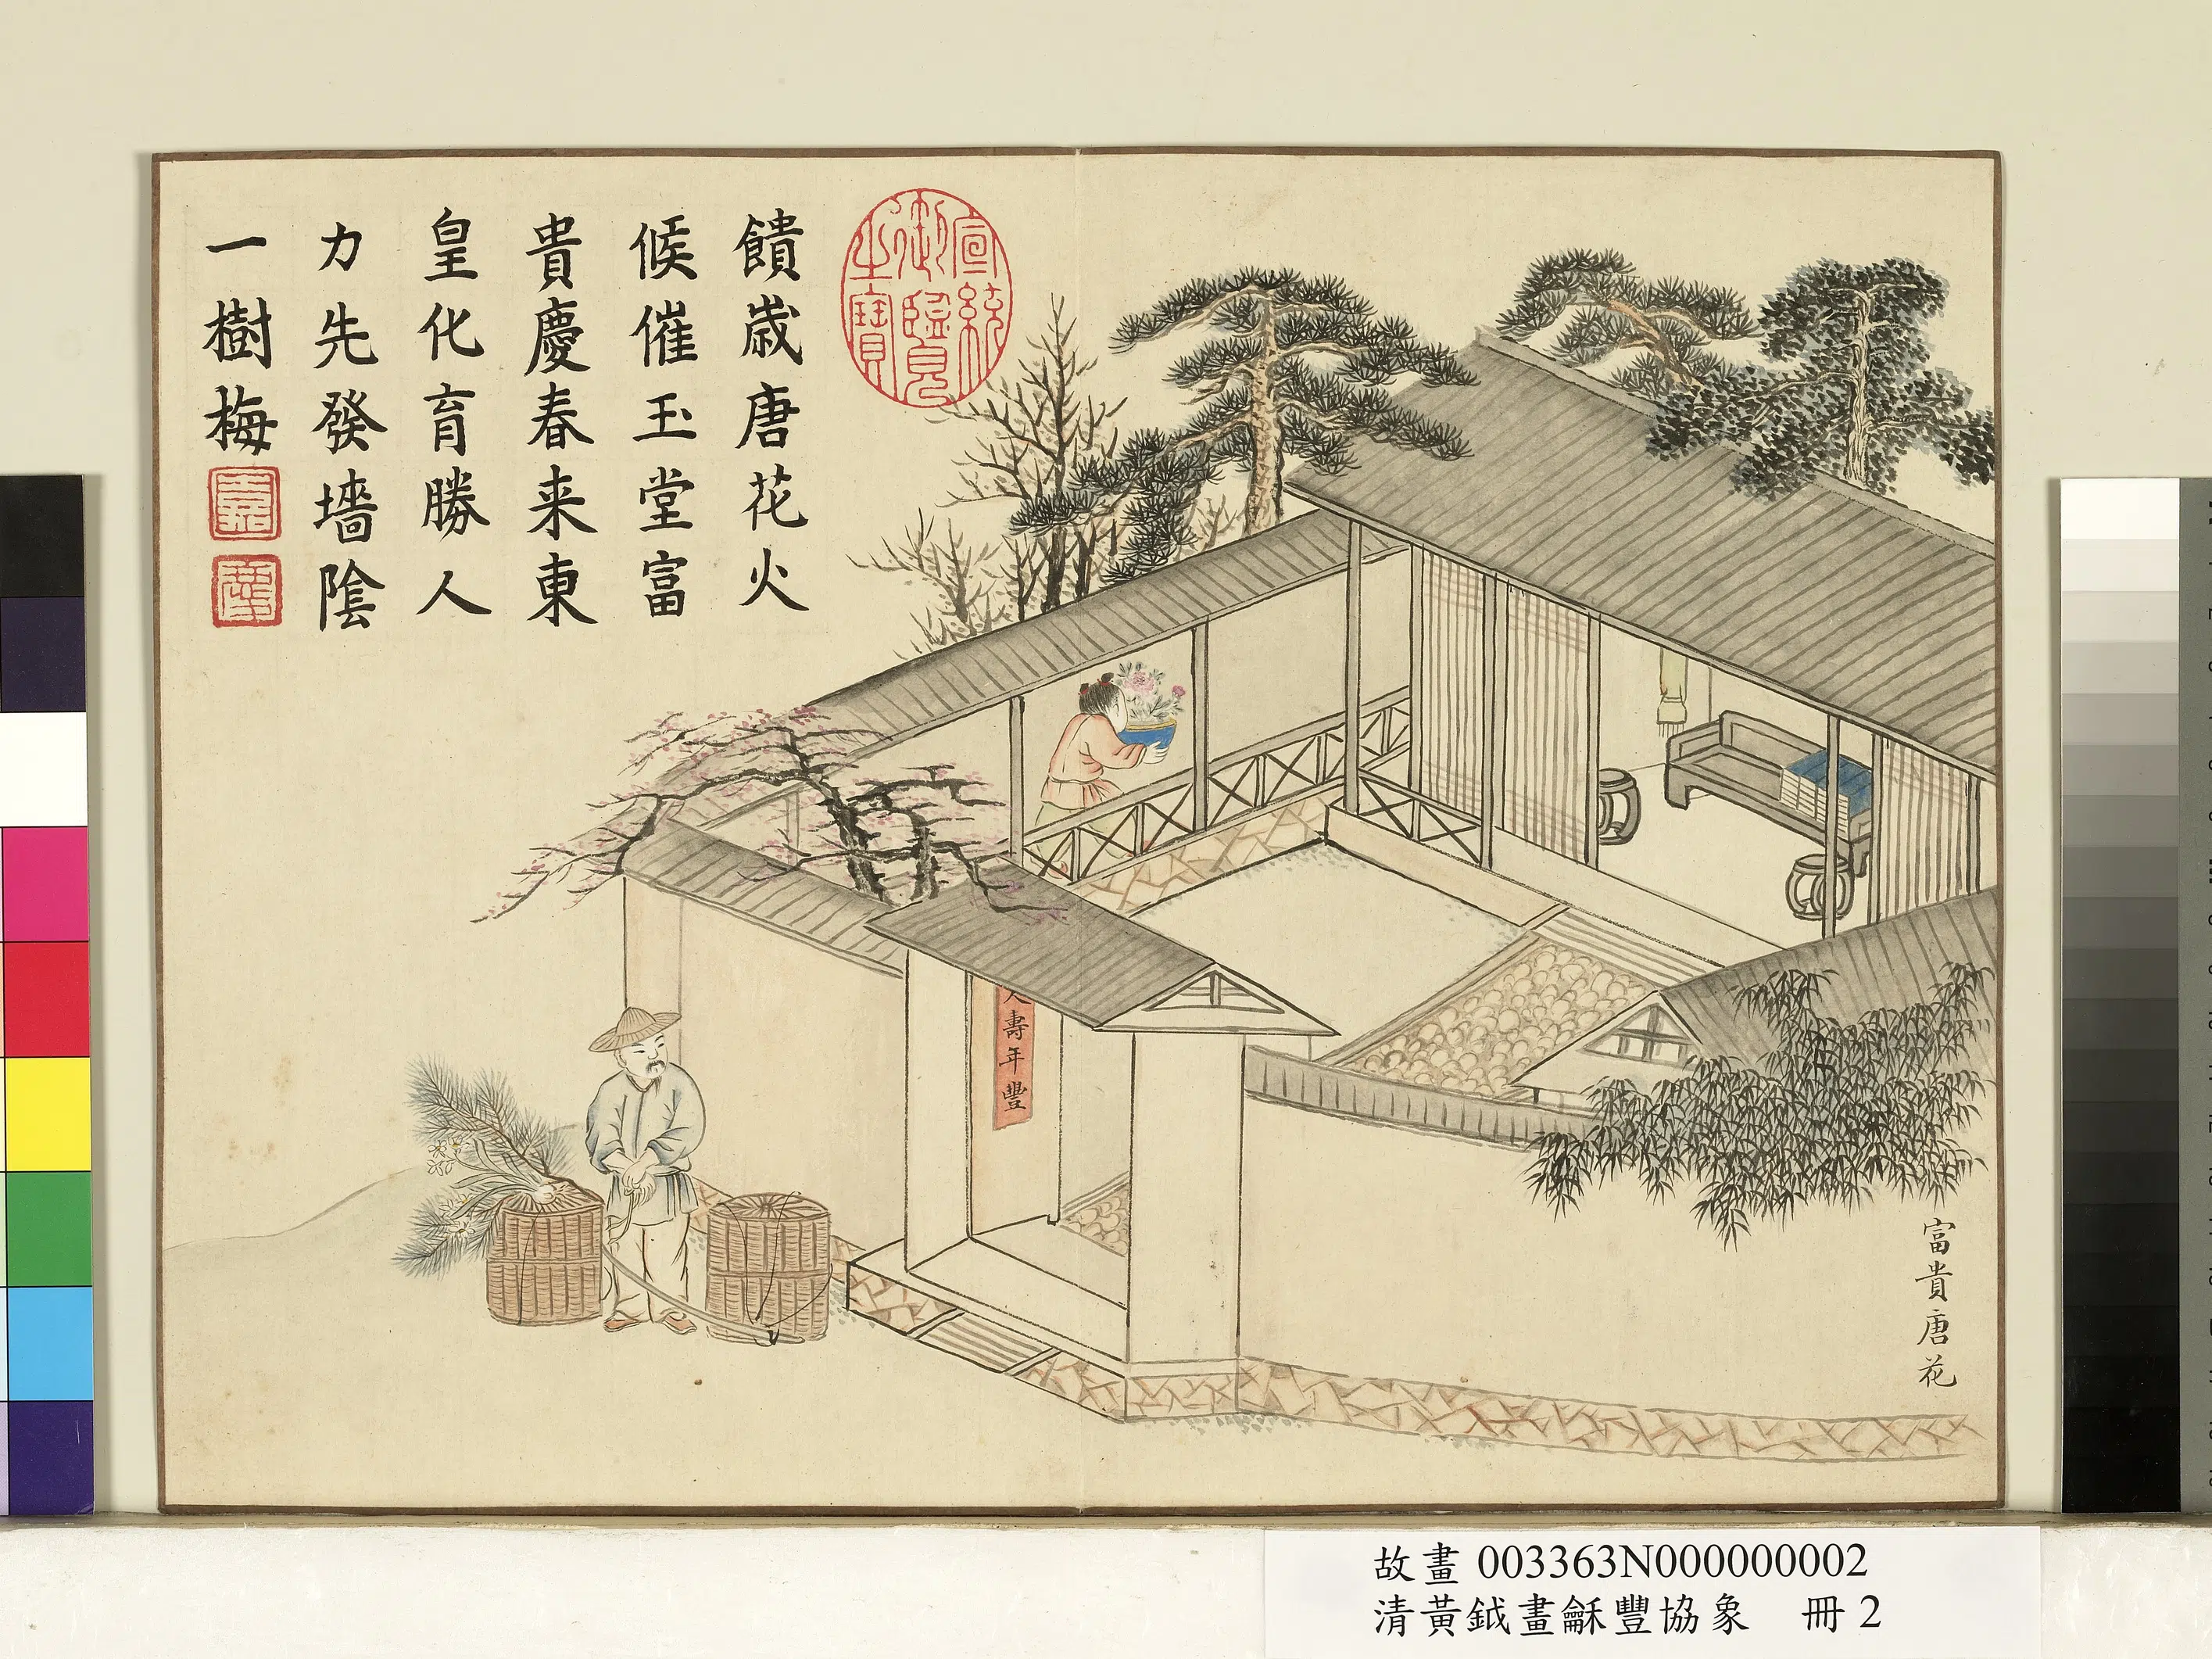 饋歲唐花火
候催玉堂富
貴慶春来東
皇化育勝人
力先發墻陰
一樹梅
宣統
御覽
之寶
嘉
慶
人壽年豐
富貴唐花
故畫 003363N000000002
清黃鉞畫龢豐協象 冊 2